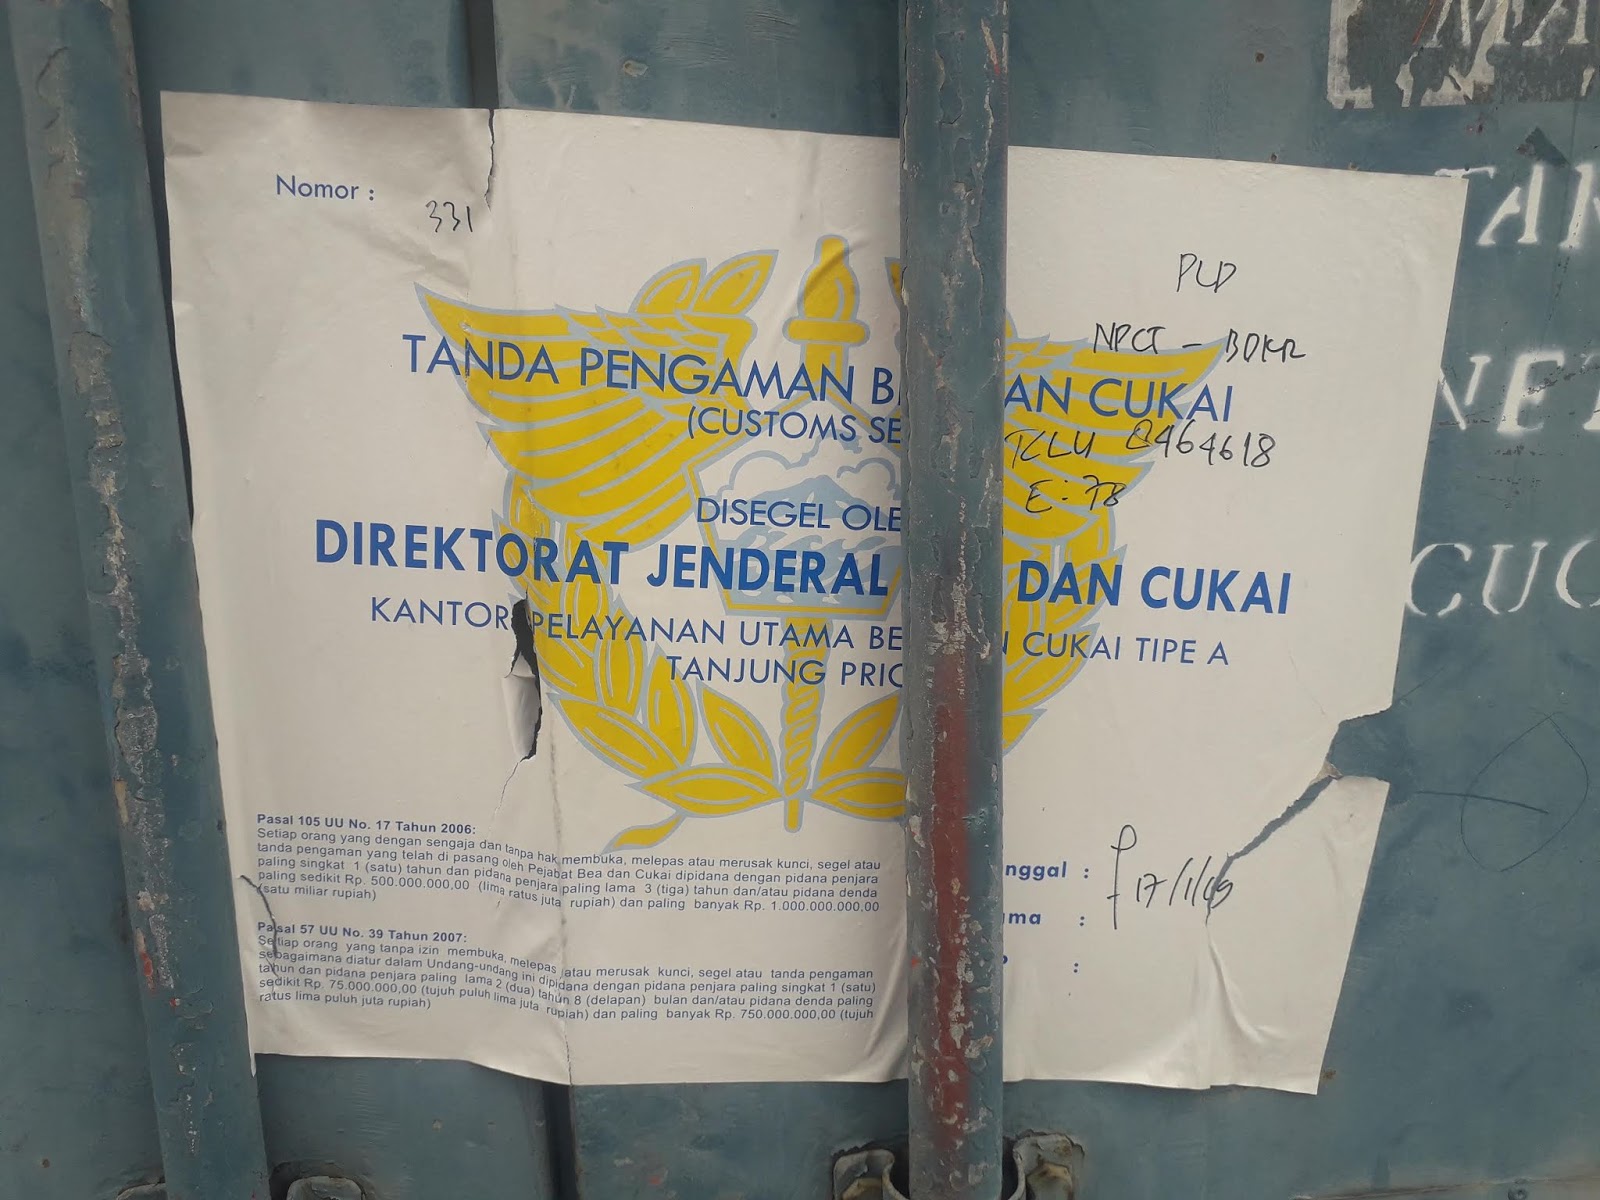 Nomor :
331
PLP
NPCT - BDKR
TANDA PENGAMAN B AN CUKAI
(CUSTOMS SE
TCLU 8464618
E : 78
DISEGEL OLE
DIREKTORAT JENDERAL DAN CUKAI
KANTOR PELAYANAN UTAMA BE N CUKAI TIPE A
TANJUNG PRIO
Pasal 105 UU No. 17 Tahun 2006:
Setiap orang yang dengan sengaja dan tanpa hak membuka, melepas atau merusak kunci, segel atau
tanda pengaman yang telah di pasang oleh Pejabat Bea dan Cukai dipidana dengan pidana penjara
paling singkat 1 (satu) tahun dan pidana penjara paling lama 3 (tiga) tahun dan/atau pidana denda
paling sedikit Rp. 500.000.000,00 (lima ratus juta rupiah) dan paling banyak Rp. 1.000.000.000,00
(satu miliar rupiah)
Pasal 57 UU No. 39 Tahun 2007:
Setiap orang yang tanpa izin membuka, melepas atau merusak kunci, segel atau tanda pengaman
sebagaimana diatur dalam Undang-undang ini dipidana dengan pidana penjara paling singkat 1 (satu)
tahun dan pidana penjara paling lama 2 (dua) tahun 8 (delapan) bulan dan/atau pidana denda paling
sedikit Rp. 75.000.000,00 (tujuh puluh lima juta rupiah) dan paling banyak Rp. 750.000.000,00 (tujuh
ratus lima puluh juta rupiah)
nggal :
17/1/19
ama :
:
MA
TAR
NE
CUC